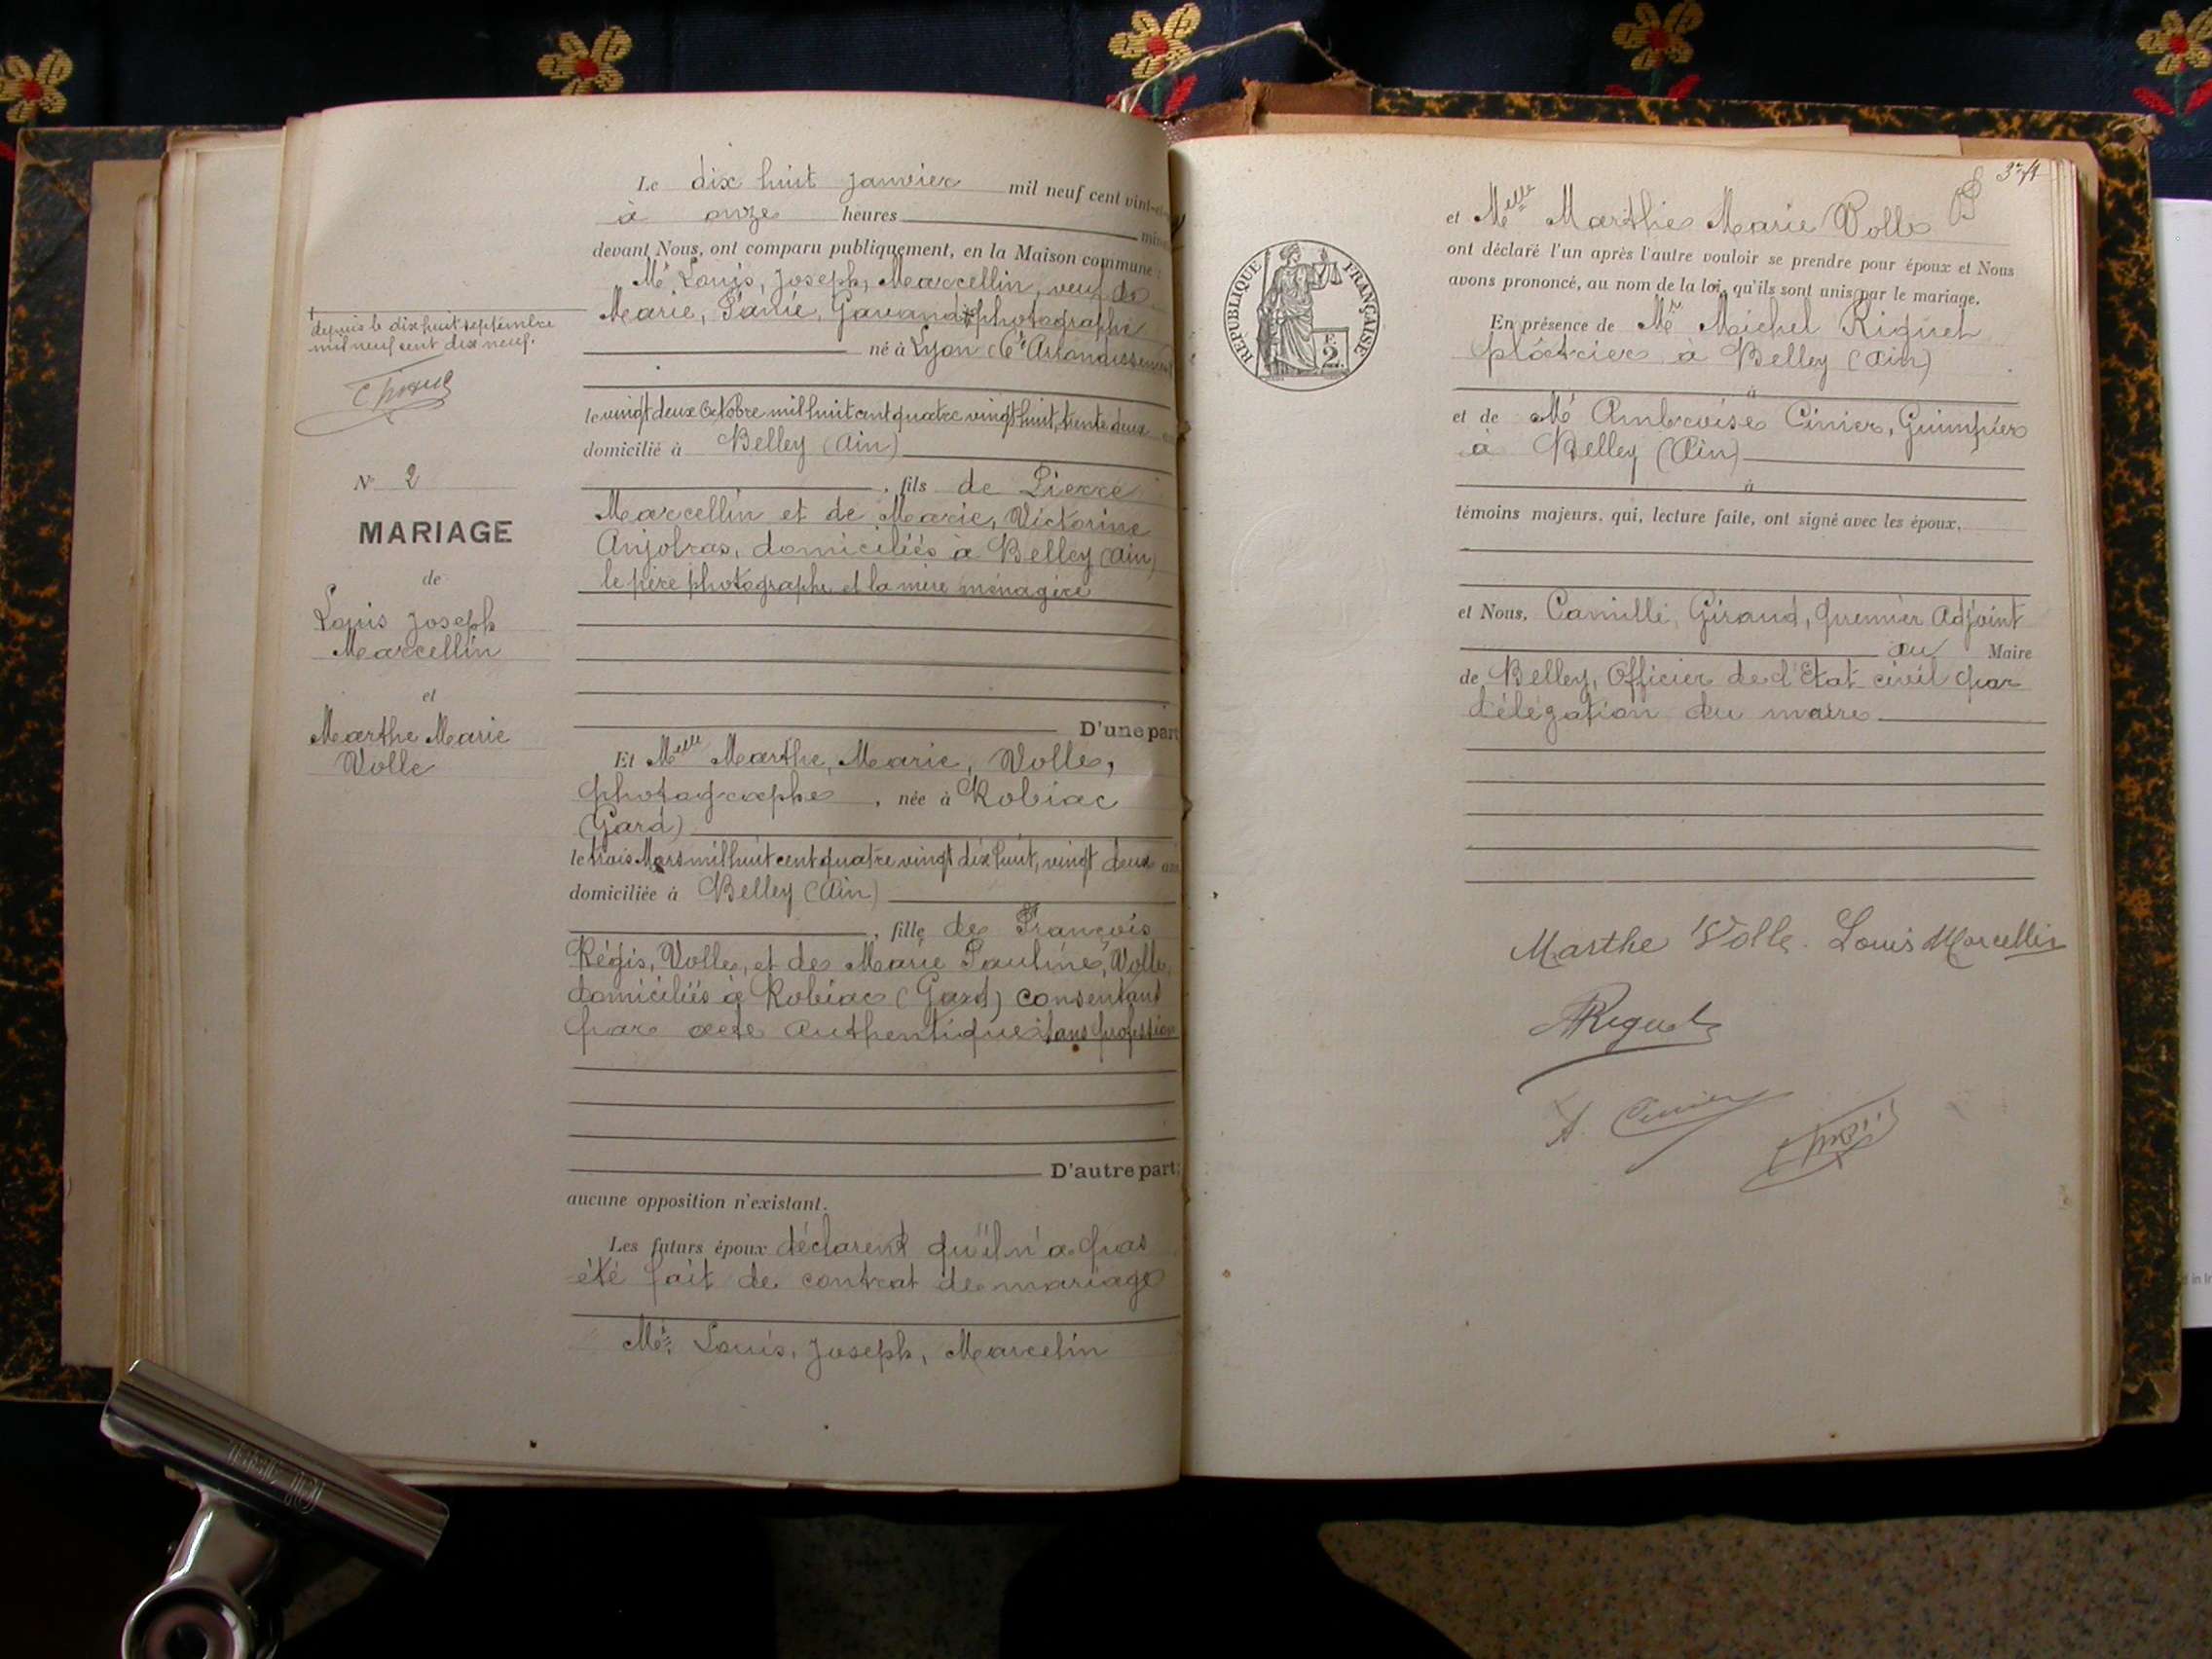 Le dix huit janvier mil neuf cent vint-et-
à onze heures
devant Nous, ont comparu publiquement, en la Maison commune :
Mr Louis, Joseph, Marcellin, veuf de
Marie, Fanie, Gavand photographe
né à Lyon (6e Arrondissement
le vingt deux Octobre mil huit cent quatre vingt huit, trente deux
domicilié à Belley (Ain)
, fils de Pierre
Marcellin et de Marie, Victorine
Anjolras, domiciliés à Belley (Ain)
le père photographe et la mère ménagère
D'une part
Et Melle Marthe, Marie, Volle,
photographe, née à Robiac
(Gard)
le trois Mars mil huit cent quatre vingt dix huit, vingt deux ans
domiciliée à Belley (Ain)
, fille de François
Régis, Volle, et de Marie Pauline, Volle,
domiciliés à Robiac (Gard) consentant
par acte authentique sans profession
D'autre part;
aucune opposition n'existant.
Les futurs époux déclarent qu'il n'a pas
été fait de contrat de mariage
Mr Louis, Joseph, Marcelin
depuis le dix huit septembre
mil neuf cent dix neuf.
N° 2
MARIAGE
de
Louis Joseph
Marcellin
et
Marthe Marie
Volle
et Melle Marthe Marie Volle
ont déclaré l'un après l'autre vouloir se prendre pour époux et Nous
avons prononcé, au nom de la loi, qu'ils sont unis par le mariage.
En présence de Mr Michel Riquet
plâtrier à Belley (Ain)
à
et de Mr Ambroise Cinier, Guimpier
à Belley (Ain)
à
témoins majeurs, qui, lecture faite, ont signé avec les époux,
et Nous, Camille, Giraud, premier Adjoint
au Maire
de Belley, Officier de l'Etat civil par
délégation du maire
RÉPUBLIQUE FRANÇAISE
F.
2
Marthe Volle. Louis Marcellin
Riquet
A. Cinier